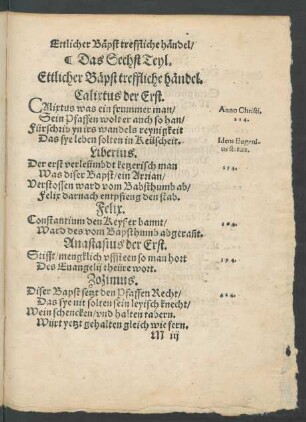 Ettlicher Bäpst treffliche händel/
¶ Das Sechst Teyl.
Ettlicher Bäpst treffliche händel.
Calixtus der Erst.
CAlixtus was ein frummer man/
Sein Pfaffen wolt er auch so han/
Anno Christi.
Fürschrib yn irs wandels reynigkeit
Das sye leben solten in Keüscheit.
Liberius.
Der erst verleümbdt ketzerisch man
Was diser Bapst/ein Arrian/
Verstossen ward vom Babsthumb ab/
Felix darnach entpfieng den stab.
Felix.
Constantium den Keyser bannt/
Ward des vom Bapsthumb abgetrant.
Anastasius der Erst.
Stifft/mengklich vffsteen so man hort
Des Euangelij theüre wort.
Zozimus.
Diser Bapst setzt den Pfaffen Recht/
Das sye nit solten sein leyisch knecht/
Wein schencken/vnd halten tabern.
Würt yetzt gehalten gleich wie fern.
M iij